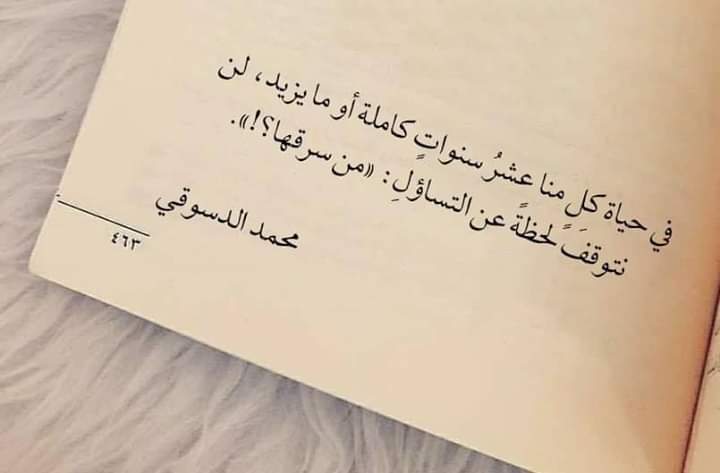 في حياة كلٍ منا عشرُ سنواتٍ كاملة أو ما يزيد، لن
نتوقفَ لحظةً عن التساؤلِ: «من سرقها؟!».
محمد الدسوقي
٤٦٣